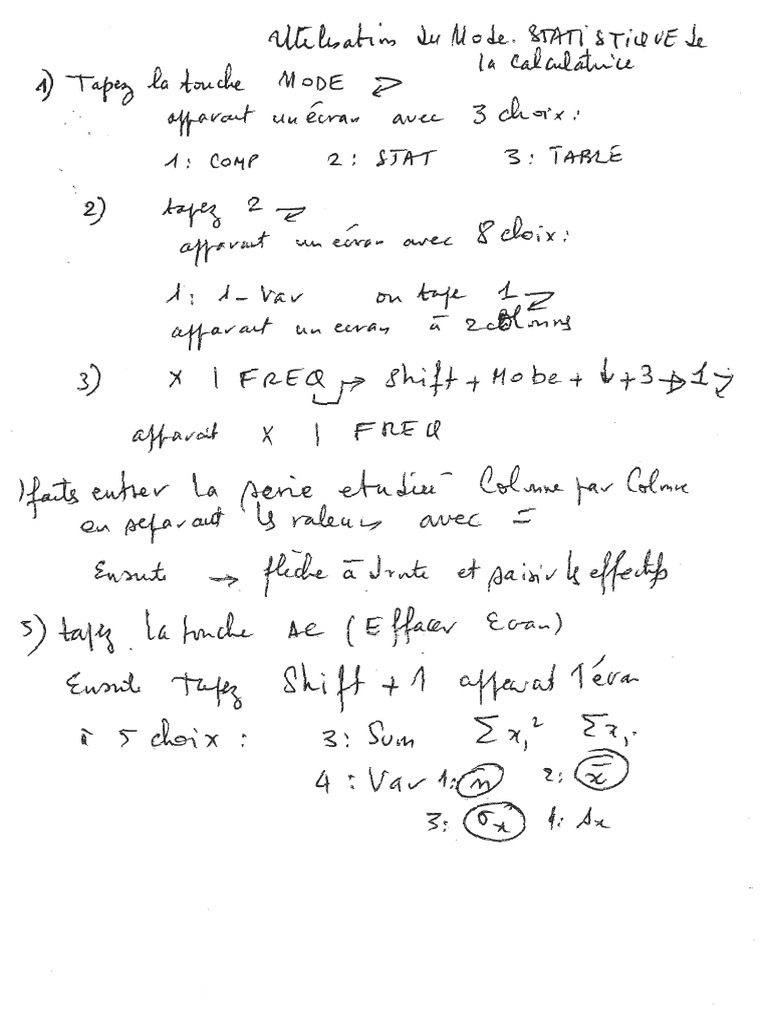 Utilisation du Mode. STATISTIQUE de
la calculatrice
1) Tapez la touche MODE
apparait un écran avec 3 choix :
1 : COMP 2 : STAT 3 : TABLE
2) tapez 2
apparait un écran avec 8 choix :
1 : 1-Var on tape 1
apparait un ecran à 2 colonnes
3) X | FREQ → Shift + Mode + ↓ + 3 → 1
apparait X | FREQ
) faits entrer la serie etudiée Colonne par Colonne
en separant les valeurs avec =
Ensuite → flèche à droite et saisir les effectifs
5) tapez la touche AC (Effacer Ecran)
Ensuite Tapez Shift + 1 apparait l'écran
à 5 choix : 3 : Sum Σxᵢ² Σxᵢ
4 : Var 1 : n 2 : x̄
3 : σx 4 : sx